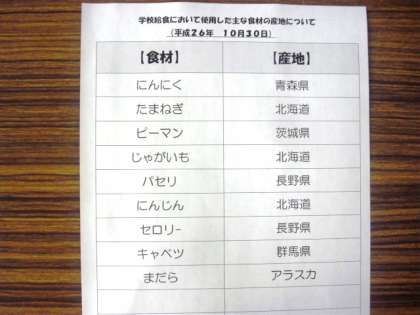 学校給食において使用した主な食材の産地について
（平成２６年　１０月３０日）
【食材】　【産地】
にんにく　青森県
たまねぎ　北海道
ピーマン　茨城県
じゃがいも　北海道
パセリ　長野県
にんじん　北海道
セロリー　長野県
キャベツ　群馬県
まだら　アラスカ